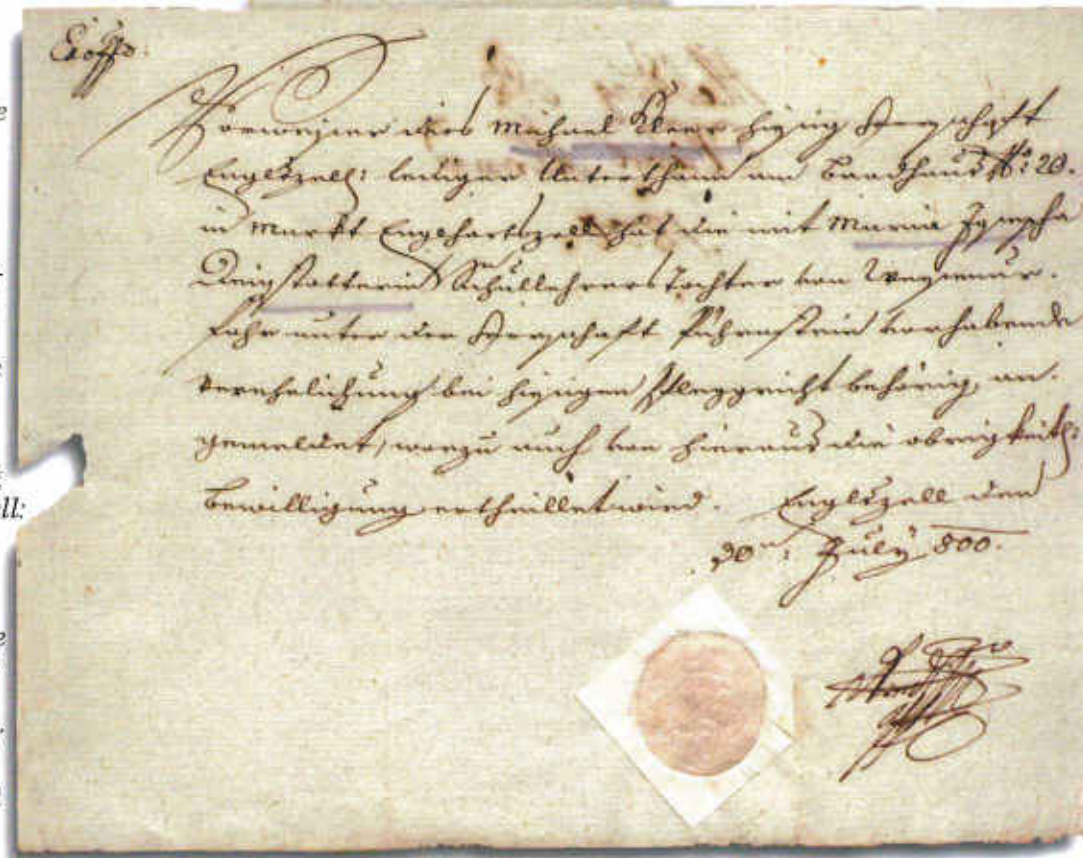 Ex offo:
Vorweiser dies Michael Kleer hiesig Herrschaft
Englszell: lediger Unterthann am Baadhaus No: 20.
in Markt Englhartszell hat die mit Maria Josepha
Schullehrers Tochter von
fahr unter der Herrschaft Pührnstein vorhabende
Verehelichung bei hiesigen Pfleggericht behörig an-
gemeldet, worzu auch von hieraus die obrigkeitl:
Bewilligung ertheillet wird. Englszell den
30ten: July 800.
ll: